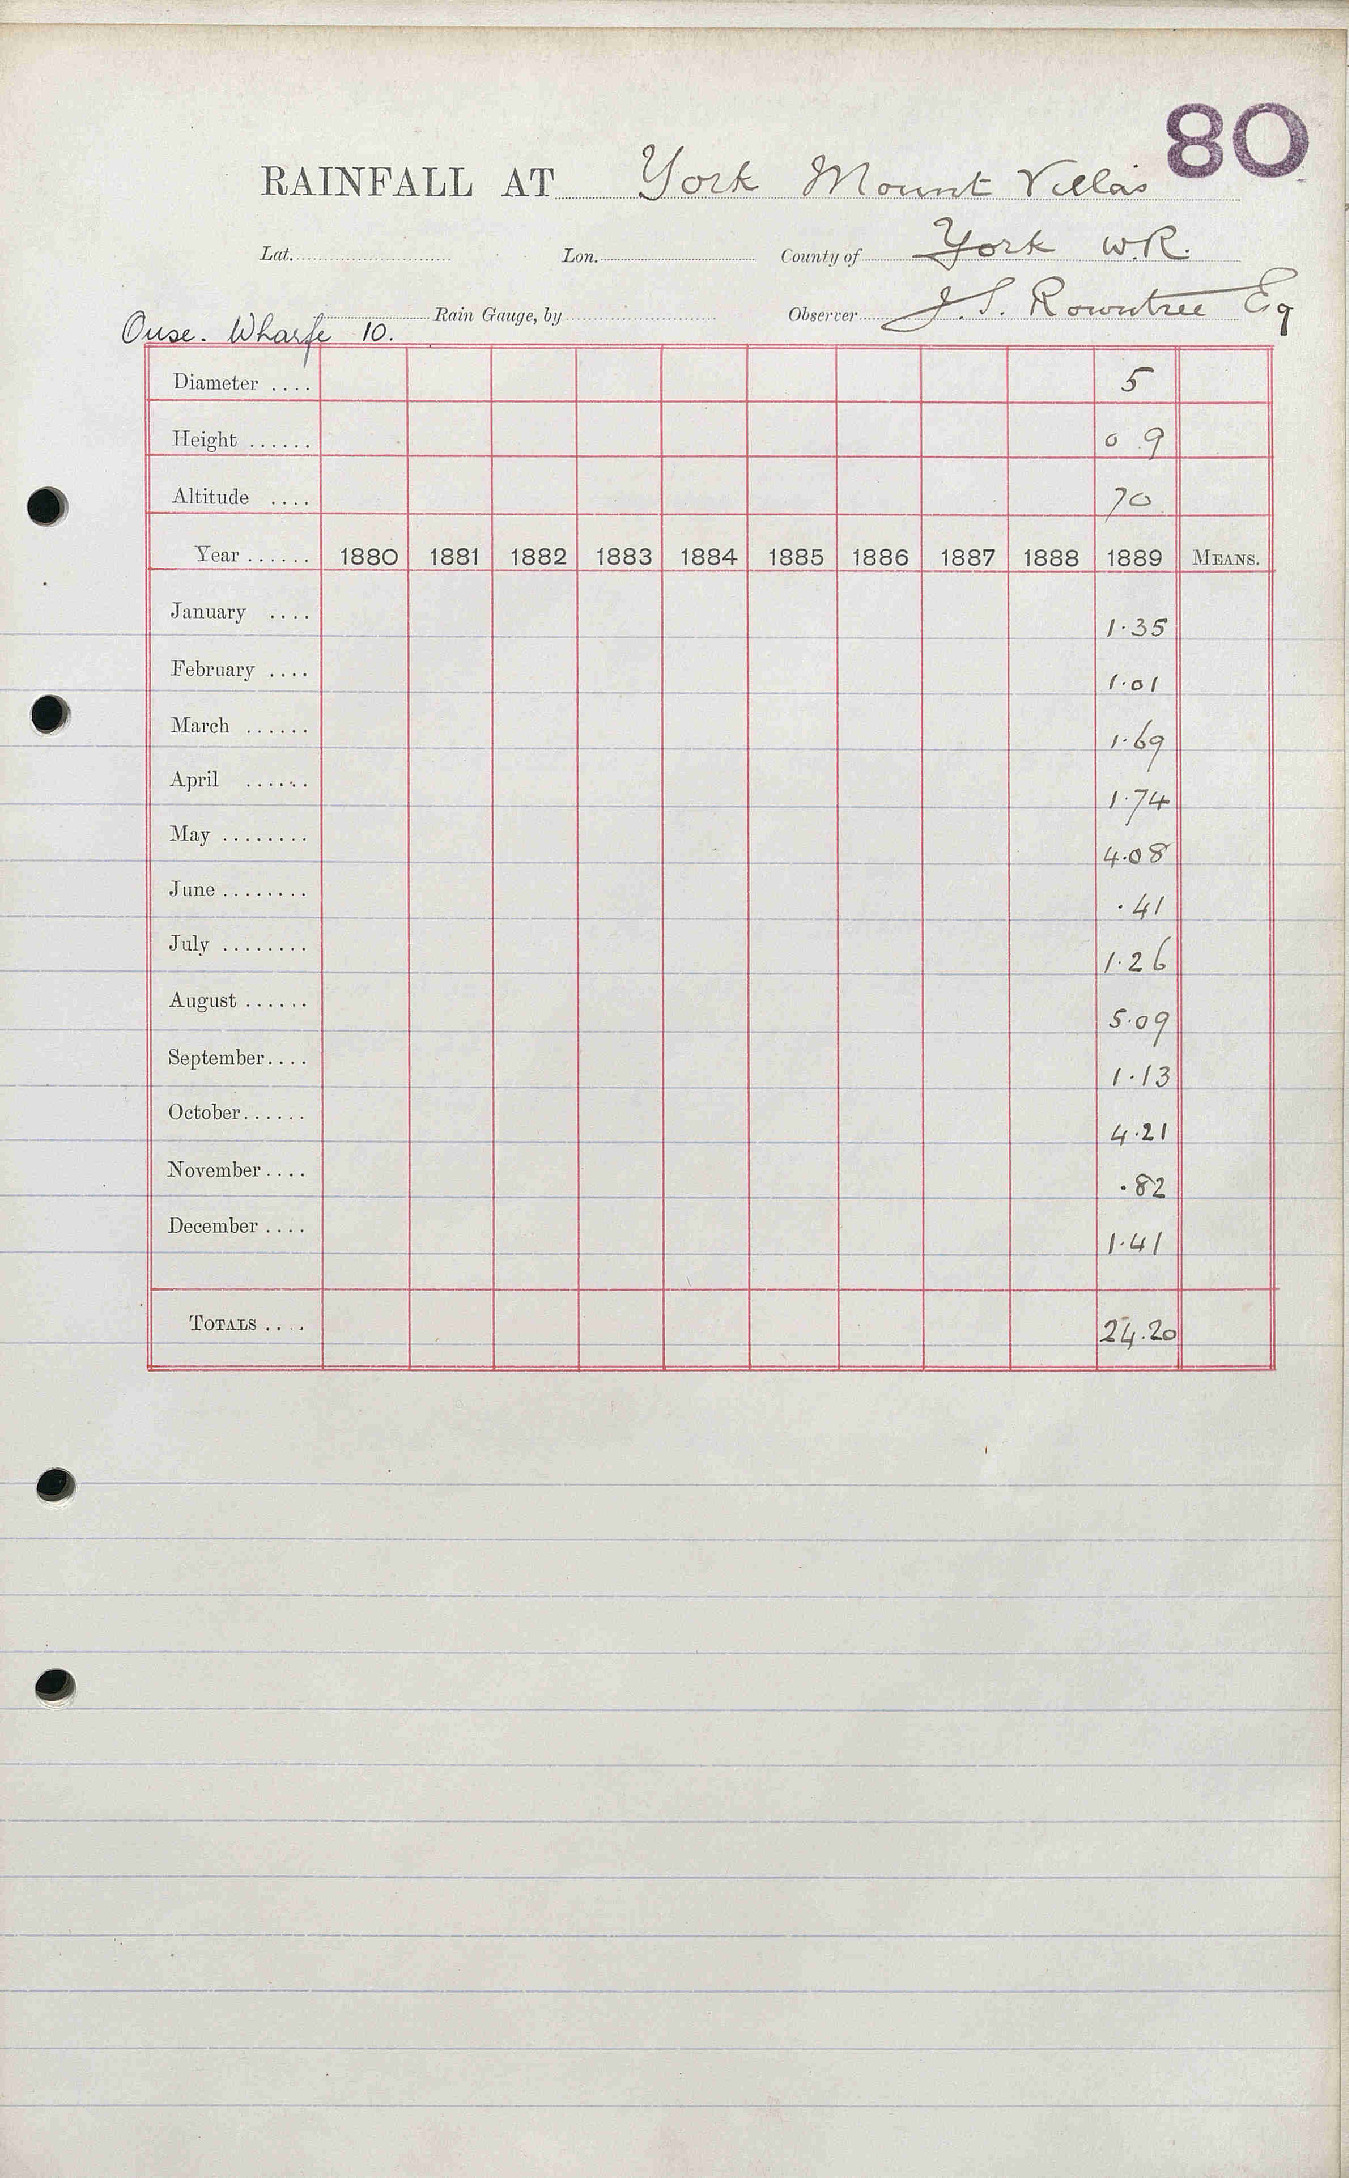 80
RAINFALL AT York Mount Villas
Lat. Lon. County of York W.R.
Rain Gauge, by Observer J. S. Rowntree Eq
Ouse. Wharfe 10.
Diameter .... 5
Height ...... 0 .9
Altitude .... 70
Year ...... 1880 1881 1882 1883 1884 1885 1886 1887 1888 1889 MEANS.
January .... 1.35
February .... 1.01
March ...... 1.69
April ...... 1.74
May ........ 4.08
June ........ .41
July ........ 1.26
August ...... 5.09
September.... 1.13
October...... 4.21
November.... .82
December.... 1.41
TOTALS .... 24.20